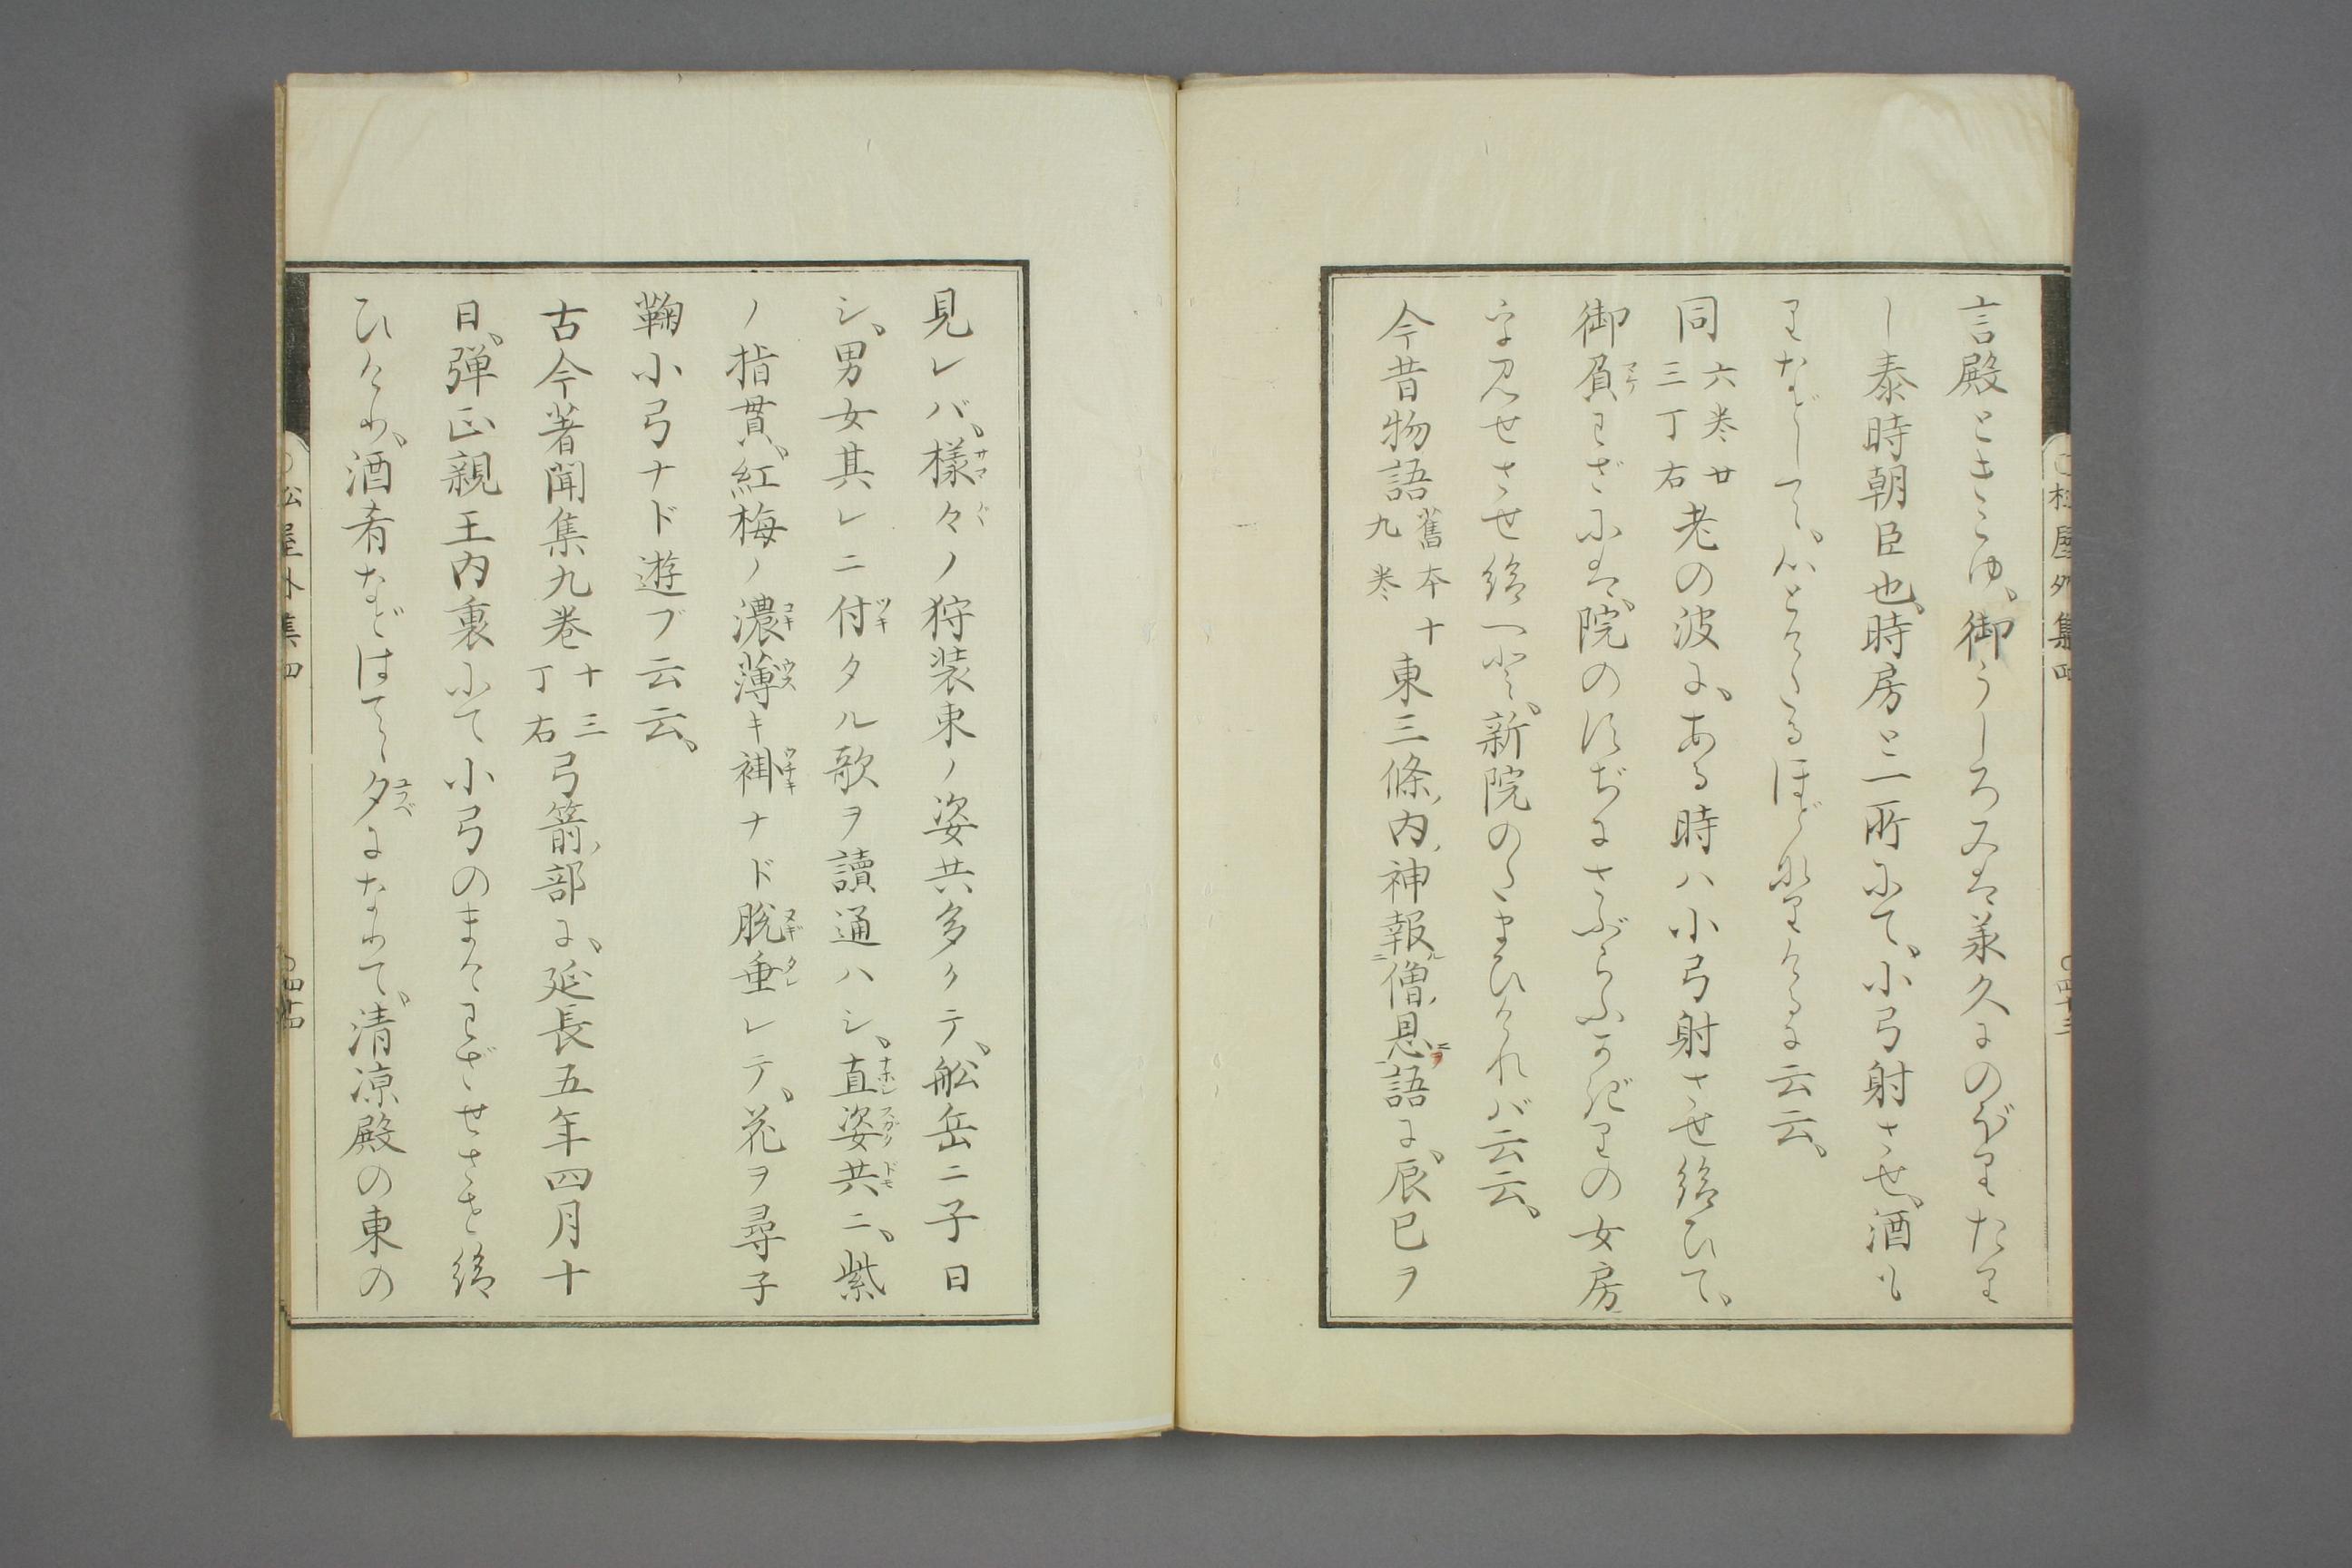 言殿ときこゆ、御うしろみは承久にのぼりたり
し泰時朝臣也、時房と一所にて、小弓射させ、酒も
りなどして、心とけたるほどなりけるに云云、
同六巻廿三丁右老の波に、ある時ハ小弓射させ給ひて、
御負わざには、院のうちにさぶらふかぎりの女房
を見せさせ給へと、新院のたまひければ云云、
今昔物語舊本十九巻東三條内神報僧恩語に、辰巳ヲ
見レバ、様々ノ狩装束ノ姿共多クテ、舩岳ニ子日
シ、男女其レニ付タル歌ヲ讀通ハシ、直姿共ニ、紫
ノ指貫、紅梅ノ濃薄キ褂ナド脱垂レテ、花ヲ尋子
鞠小弓ナド遊ブ云云、
古今著聞集九巻十三丁右弓箭部に、延長五年四月十
日、弾正親王内裏にて小弓のまけわざせさせ給
ひけり、酒肴などはてゝ夕になりて、清涼殿の東の
松屋外集四
〇四十三
松屋外集四
〇四十四